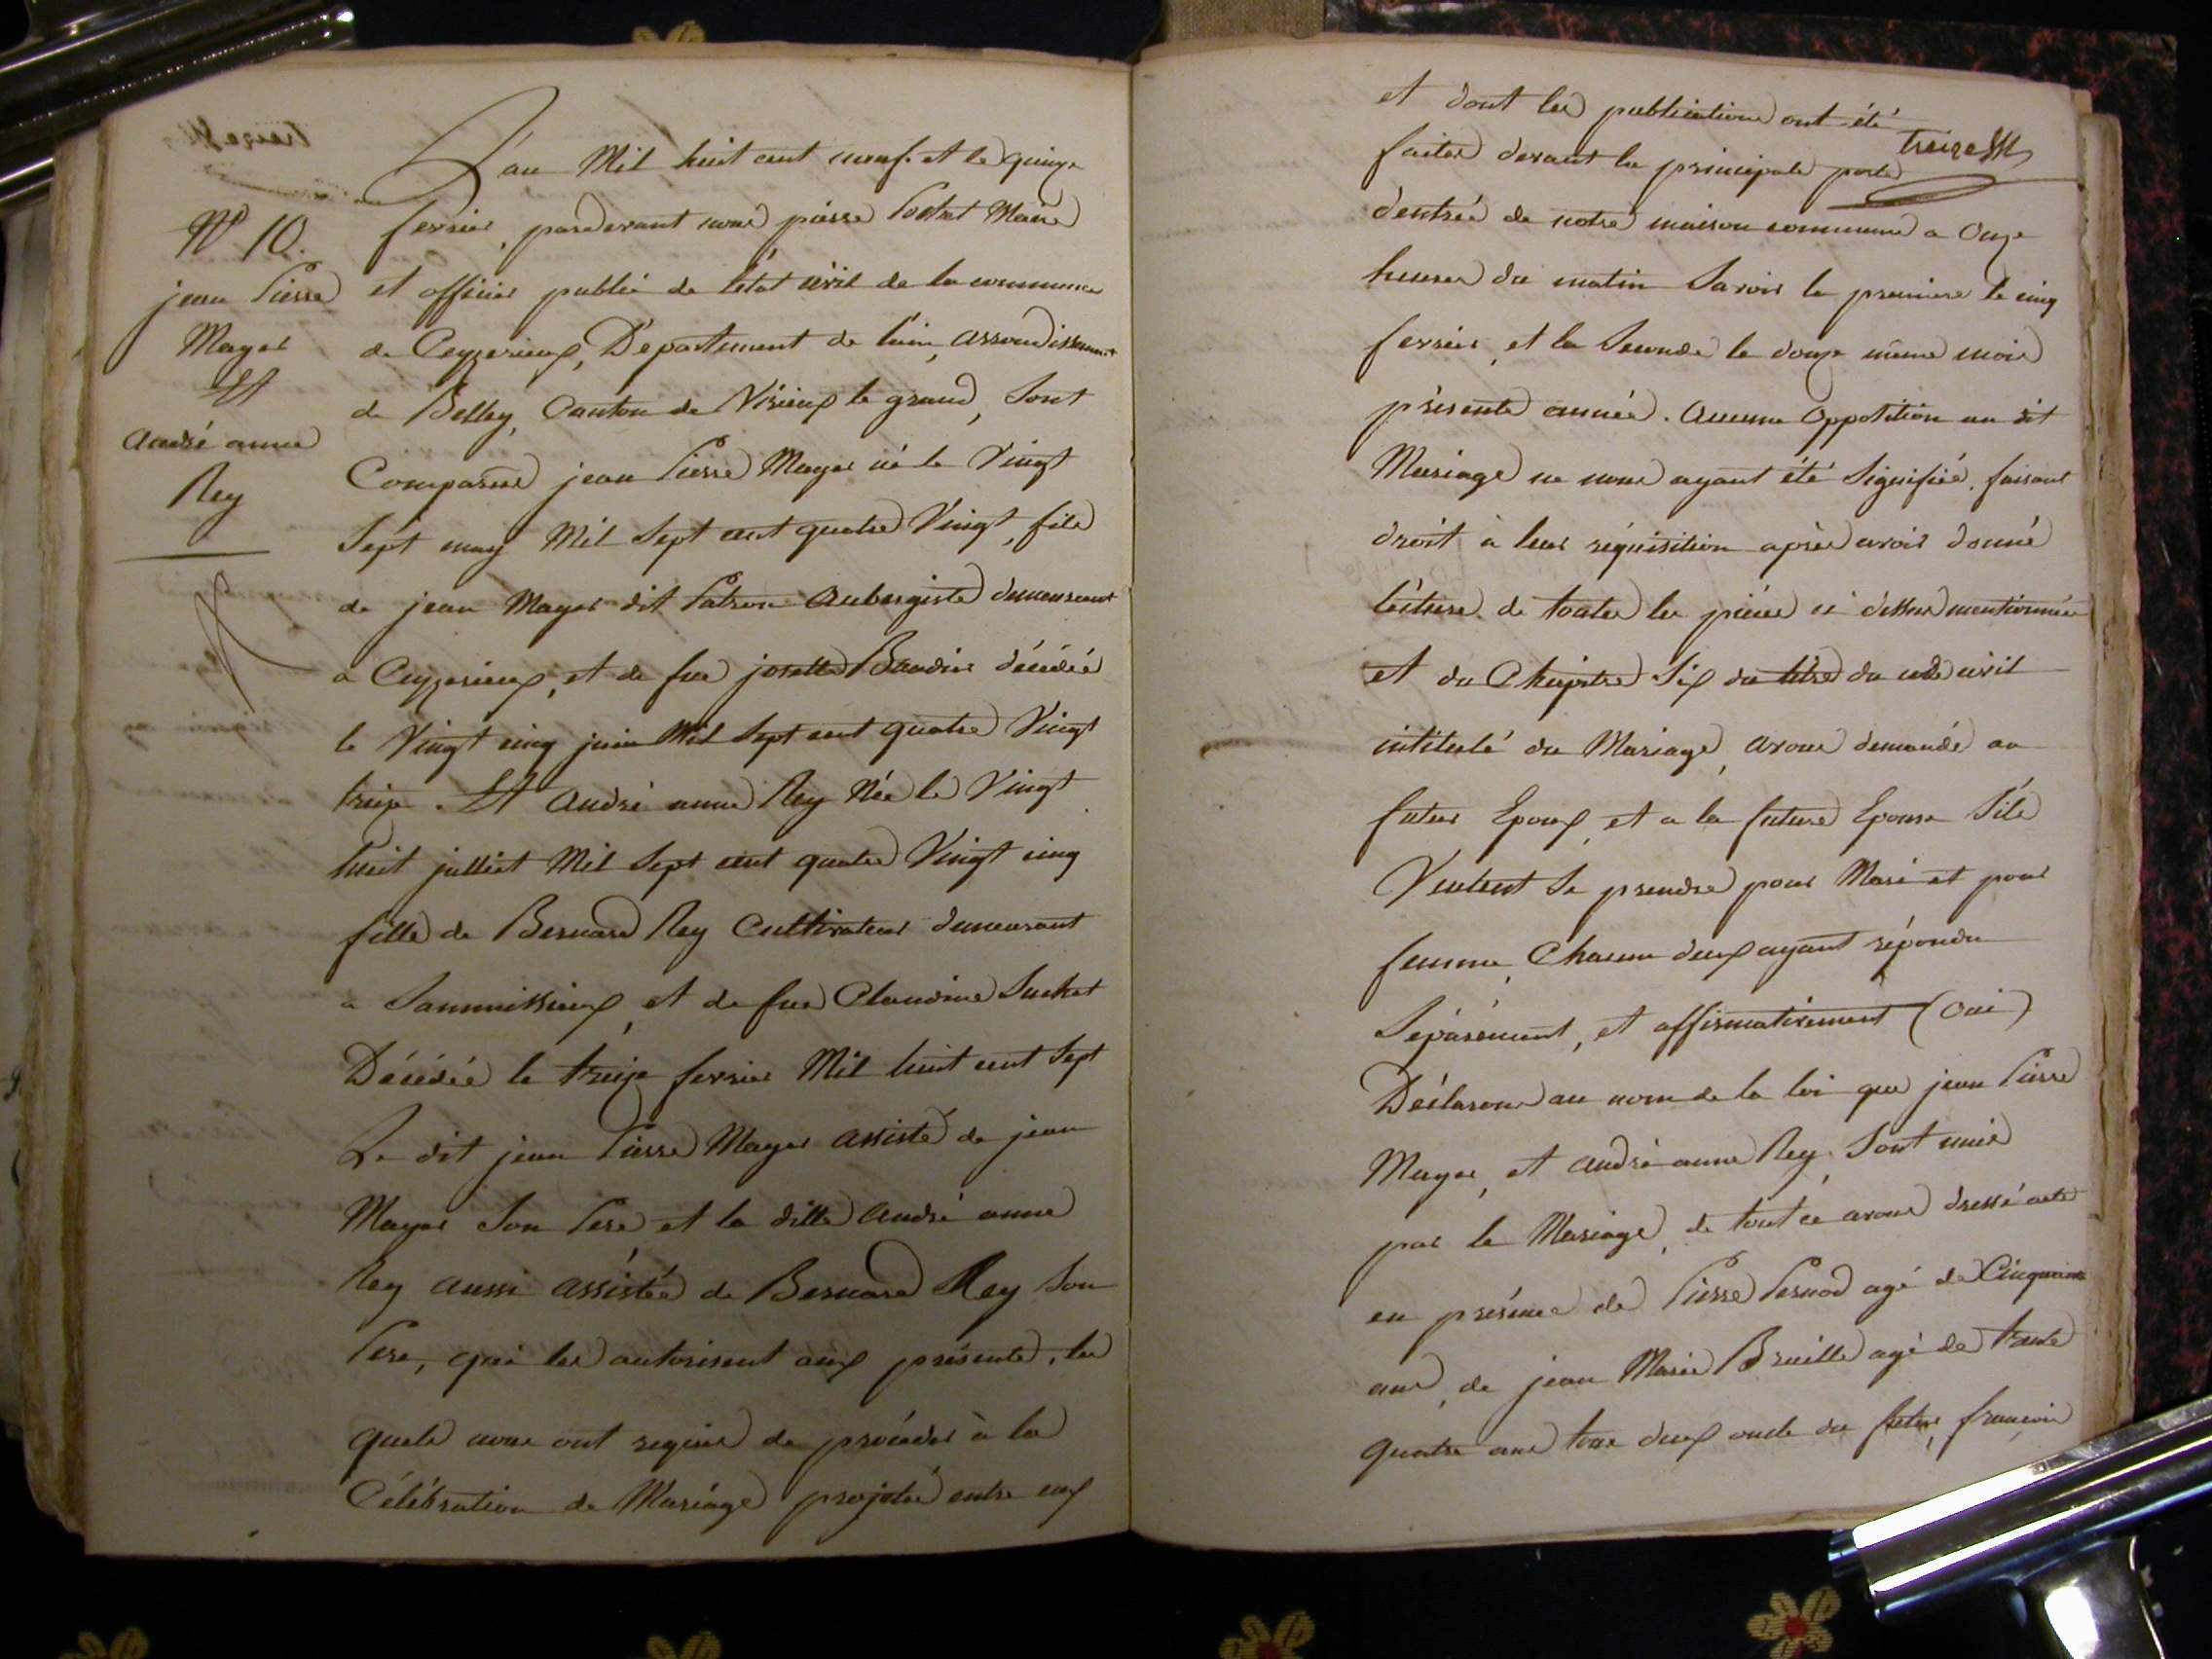 N° 10.
jean Pierre
Mayer
Et
André anne
Rey
L'an Mil huit cent neuf et le quinze
fevrier, pardevant nous pierre Maire
et officier public de l'état civil de la commune
de Ceyzerieux, Département de l'ain, arrondissement
de Belley, Canton de Virieux le grand, Sont
Comparus jean Pierre Mayer né le Vingt
Sept may Mil Sept cent quatre Vingt, fils
de jean Mayer dit Patron Aubergiste demeurant
a Ceyzerieux, et de fue josette Baudin décédée
le Vingt cinq juin Mil Sept cent quatre Vingt
treize. Et André anne Rey Née le Vingt
huit julliet Mil Sept cent quatre Vingt cinq
fille de Bernard Rey Cultivateur demeurant
a et de fue Claudine Suchet
Décédée le treize fevrier Mil huit cent Sept
Le dit jean Pierre Mayer assisté de jean
Mayer Son Pere et la ditte André anne
Rey aussi assistée de Bernard Rey Son
Pere, qui les autorisent aux présente, les
quels nous ont requis de procéder à la
Célébration de Mariage projeté entre eux
treize
et dont les publications ont été
faites devant la principale porte
d'entrée de notre maison commune a Onze
heures du matin Savoir la premiere le cinq
fevrier, et la Seconde le douze même mois
présente année. Aucune Oppotition au dit
Mariage ne nous ayant été Signifiée, faisant
droit à leur réquisition après avoir donné
lécture de toutes les pièces ci dessus mentionnée
et du Chapitre Six du titre du code civil
intitulé du Mariage, avons demandé au
futur Epoux, et a la future Epouse S'ils
Veulent Se prendre pour Mari et pour
femme, Chacun deux ayant répondu
Séparément, et affirmativement (oui)
Déclarons au nom de la loi que jean Pierre
Mayer, et André anne Rey, Sont unis
par le Mariage, de tout ce avons dressé acte
en présence de Pierre Pernod agé de Cinquante
ans, de jean Marie Braille agé de trente
quatre ans tous deux oncle du futur, françois